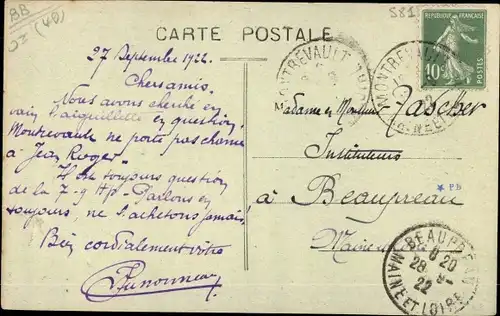 BB
OZ (40)
CARTE POSTALE
27 Septembre 1922.
Chers amis.
Nous avons cherché en
vain l'aiguillette en question,
Montrevault ne porte pas chance
à "Jean Roger"
toujours question
de la 7-9 H/P- Parlons en
toujours, ne l'achetons jamais!
Bien cordialement vôtre
REPUBLIQUE FRANÇAISE
10c
POSTES
MONTREVAULT
MONTREVAULT
Madame et Monsieur
Instituteurs
à Beaupreau
Maine et
PB
BEAUPREAU
8 20
28 9-
22
MAINE ET LOIRE